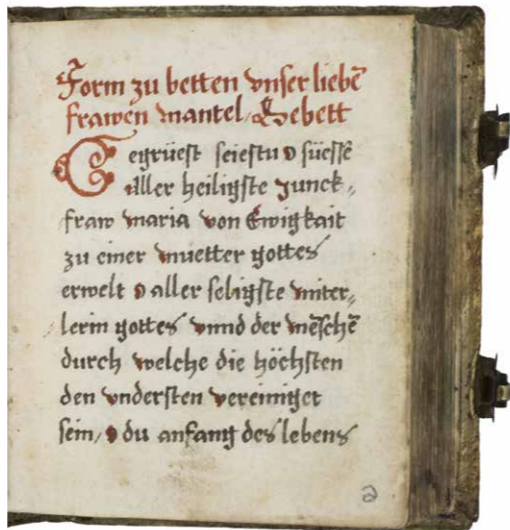 Form zu betten vnser liebē
frawen mantel, Gebett
Gegrüest seiestu o süesse
aller heiligste Junck„
fraw maria von Ewigkait
zu einer muetter gottes
erwelt o aller seligste miter„
lerin gottes vnnd der mēschē
durch welche die höchsten
den vndersten vereiniget
sein, o du anfang des lebens